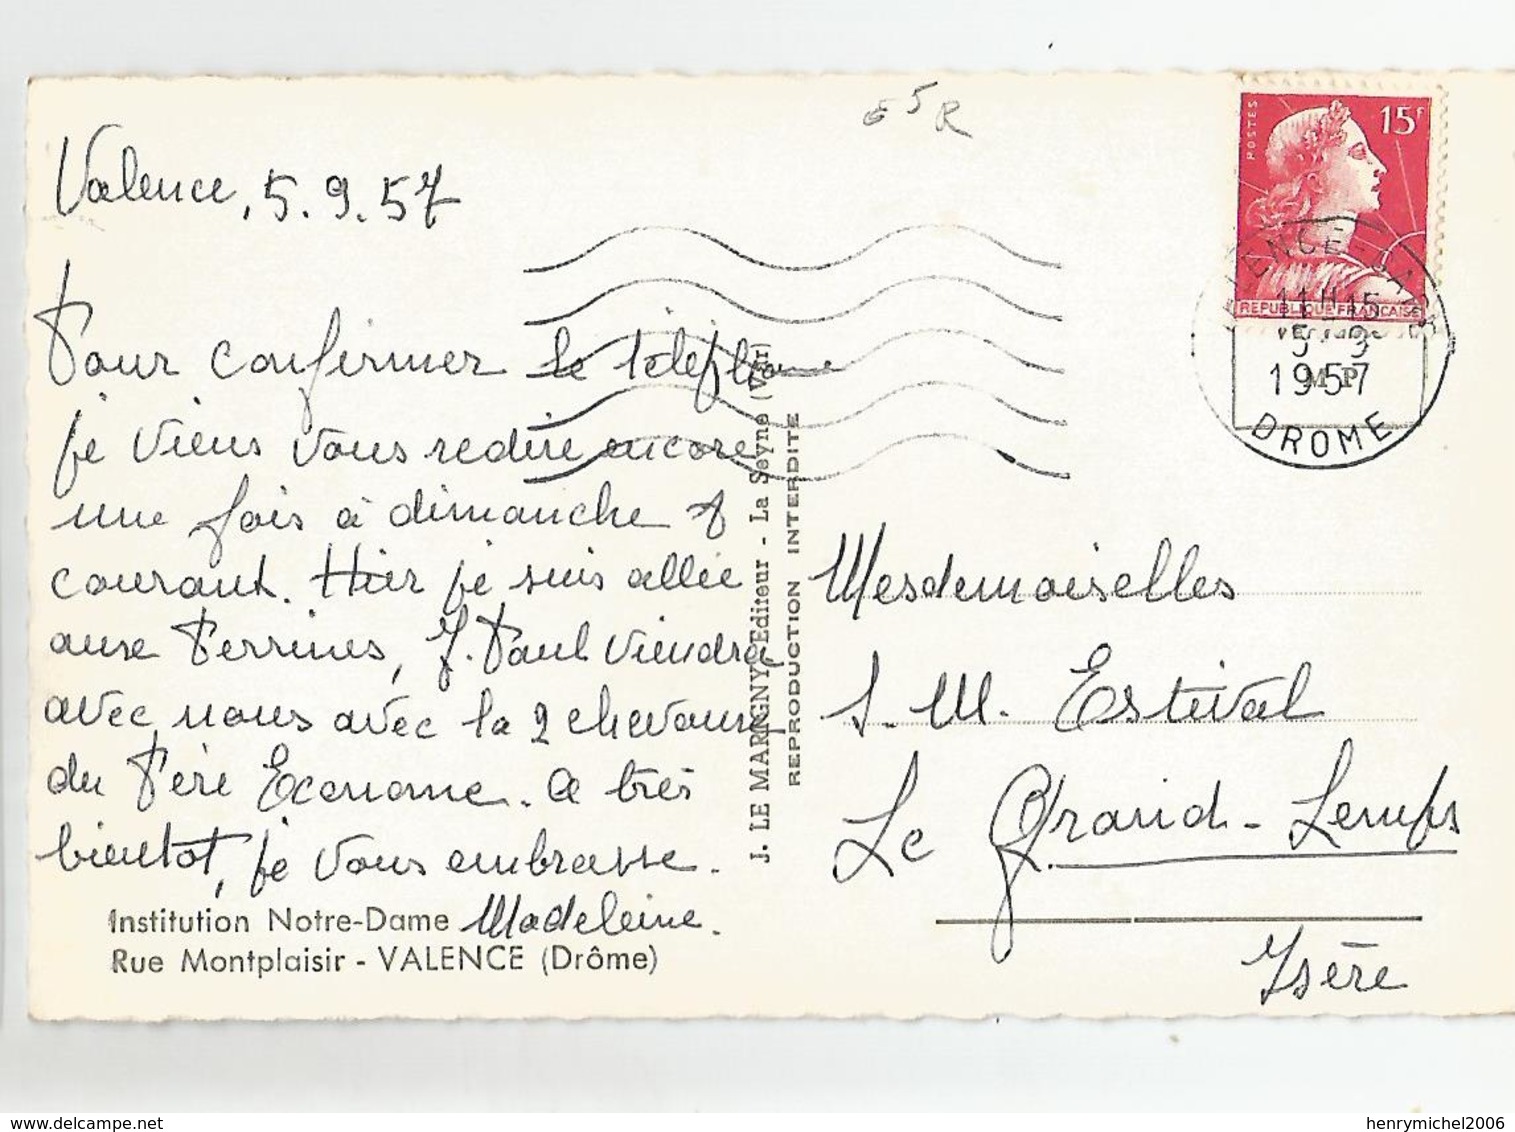 E 5 R
POSTES
15F
REPUBLIQUE FRANÇAISE
VALENCE GARE
11H15
5 - 9
1957
DROME
Valence, 5.9.57
Pour confirmer le téléphone
je viens vous redire encore
une fois à dimanche 8
courant. Hier je suis allée
aux Perrines, J. Paul viendra
avec nous avec la 2 chevaux
du Père Econome. A très
bientot, je vous embrasse.
Madeleine.
Institution Notre-Dame
Rue Montplaisir - VALENCE (Drôme)
J. LE MARIGNY, Editeur - La Seyne (Var)
REPRODUCTION INTERDITE
Mesdemoiselles
S. M. Estival
Le Grand-Lemps
Isère
delcampe.net
henrymichel2006